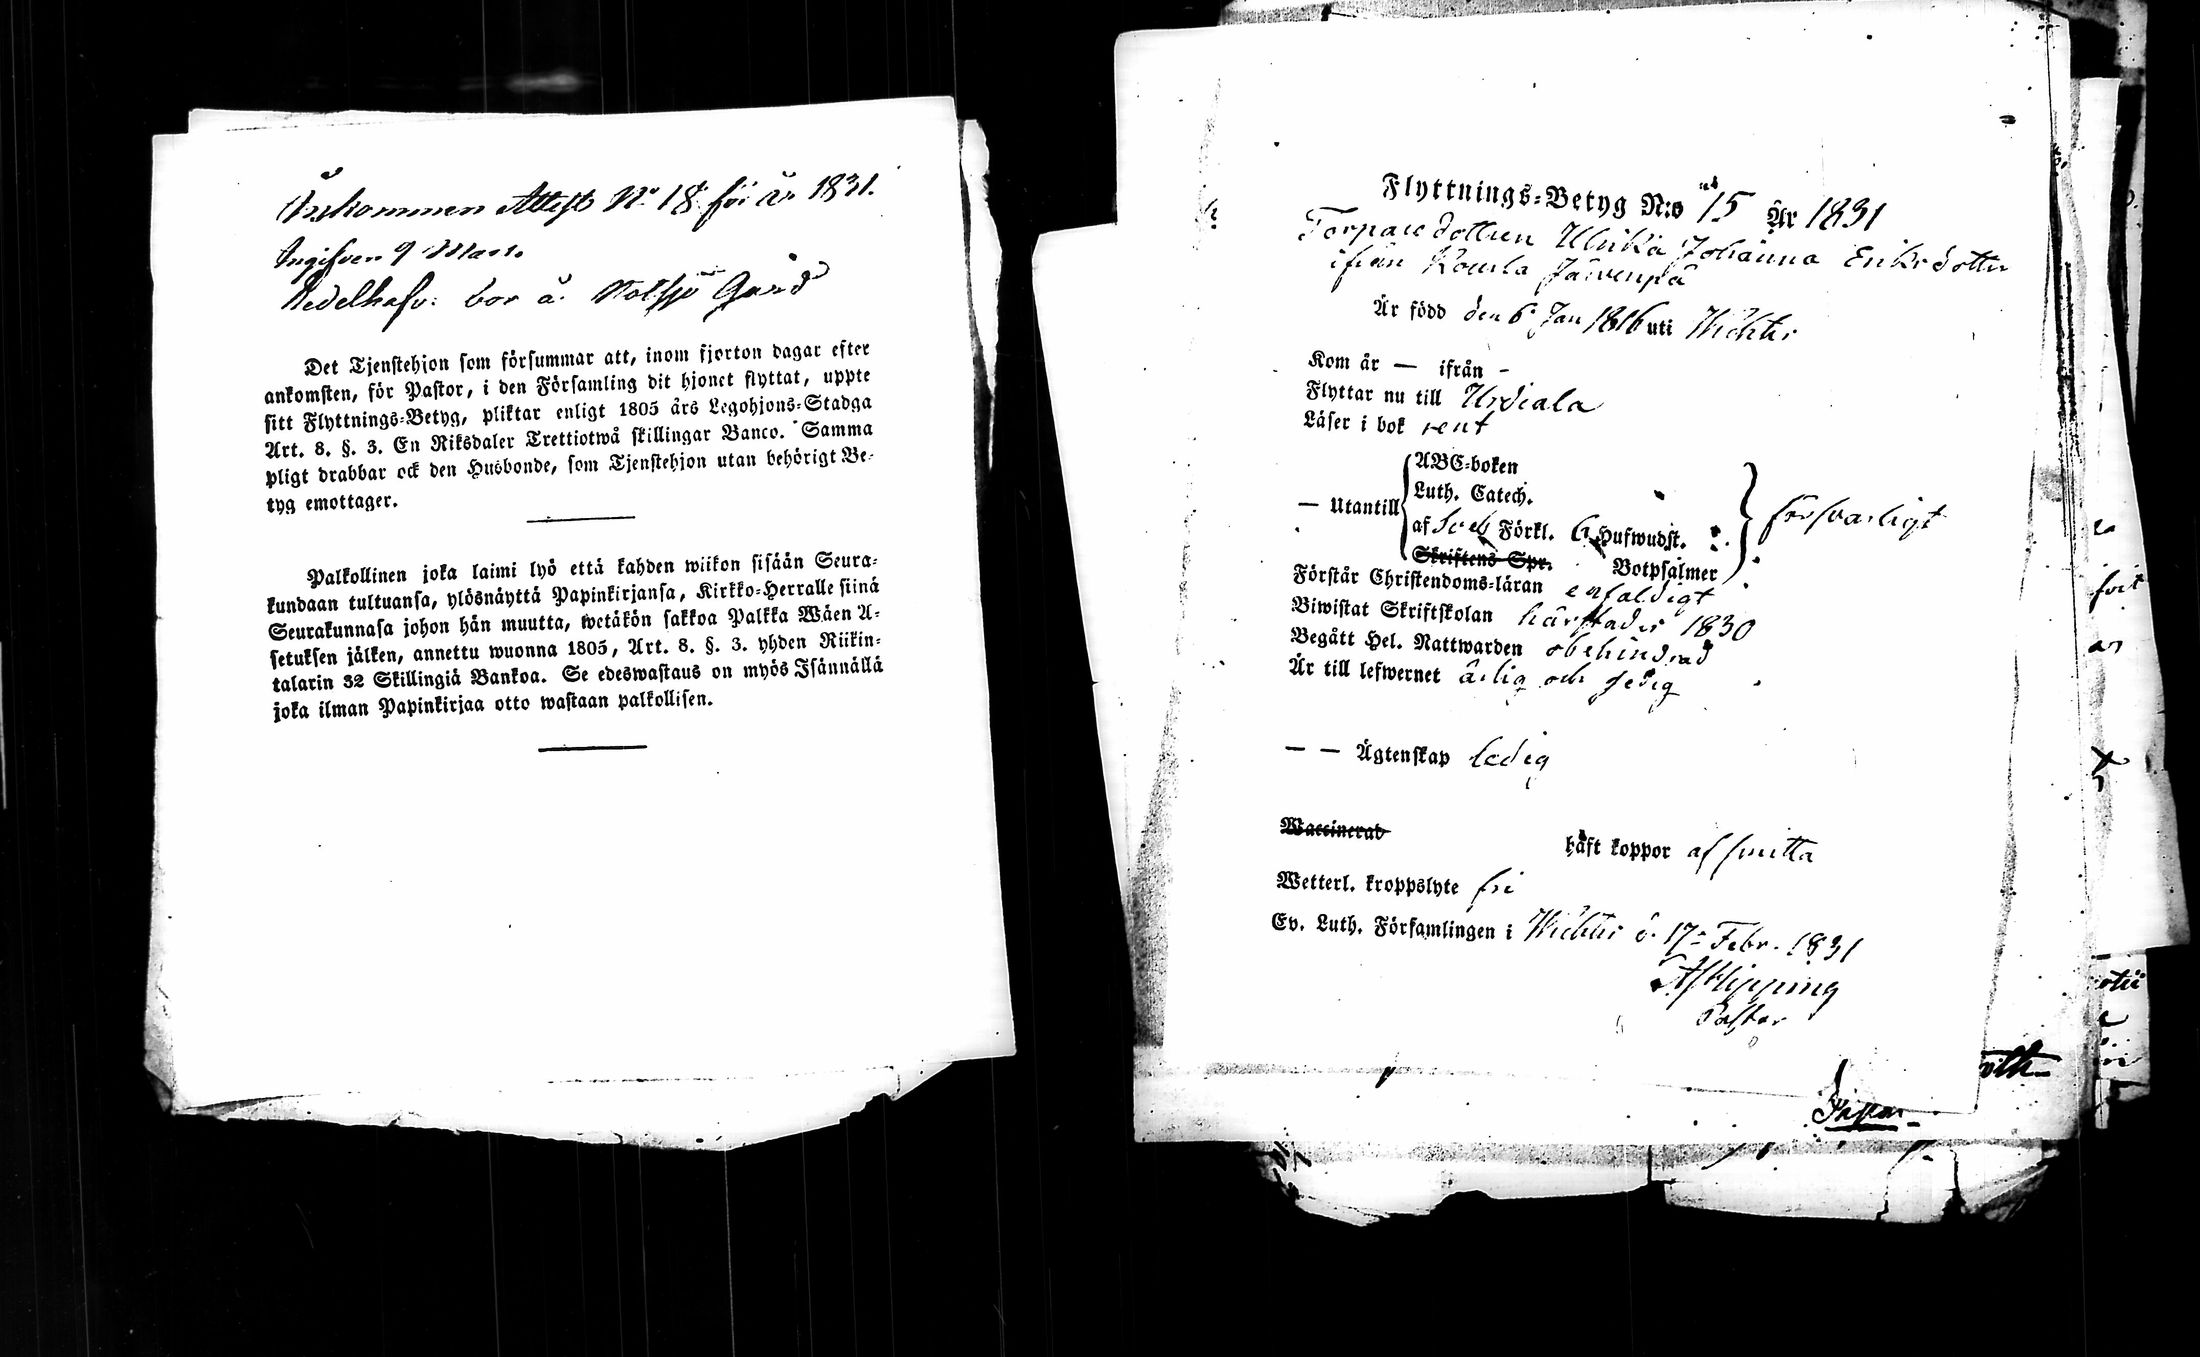 Inkommen Attest N:o 18 för år 1831.
Ingifven 9 Mars.
bor å Notsjö Gård
Det Tjenstehjon som försummar att, inom fjorton dagar efter
ankomsten, för Pastor, i den Församling dit hjonet flyttat, uppte
sitt Flyttnings-Betyg, pliktar enligt 1805 års Legohjons-Stadga
Art. 8. §. 3. En Riksdaler Trettiotwå skillingar Banco. Samma
pligt drabbar ock den Husbonde, som Tjenstehjon utan behörigt Be-
tyg emottager.
Palkollinen joka laimi lyö että kahden wiikon sisään Seura-
kundaan tultuansa, ylösnäyttä Papinkirjansa, Kirkko-Herralle siinä
Seurakunnasa johon hän muutta, wetäkön sakkoa Palkka Wäen A-
setuksen jälken, annettu wuonna 1805, Art. 8. §. 3. yhden Riikin-
talarin 32 Skillingiä Bankoa. Se edeswastaus on myös Isännällä
joka ilman Papinkirjaa otto wastaan palkollisen.
Flyttnings-Betyg N:o 15 År 1831
Torpare dottren Ulrika Johanna Eriksdotter
ifrån Kourla Järvenpä
Är född den 6 Jan 1816 uti Wichtis
Kom år — ifrån -
Flyttar nu till Urdiala
Läser i bok rent
— Utantill
ABC-boken
Luth. Catech.
af Sveb Förkl. 6 Hufwudst.
Skriftens Spr. Botpsalmer
försvarligt
Förstår Christendoms-läran enfaldigt
Biwistat Skriftskolan härstädes 1830
Begått Hel. Nattwarden obehindrad
Är till lefwernet ärlig och sedig
— — Ägtenskap ledig
Waccinerad
häft koppor af smitta
Wetterl. kroppslyte fri
Ev. Luth. Församlingen i Wichtis d. 17 Febr. 1831
Hipping
Pastor